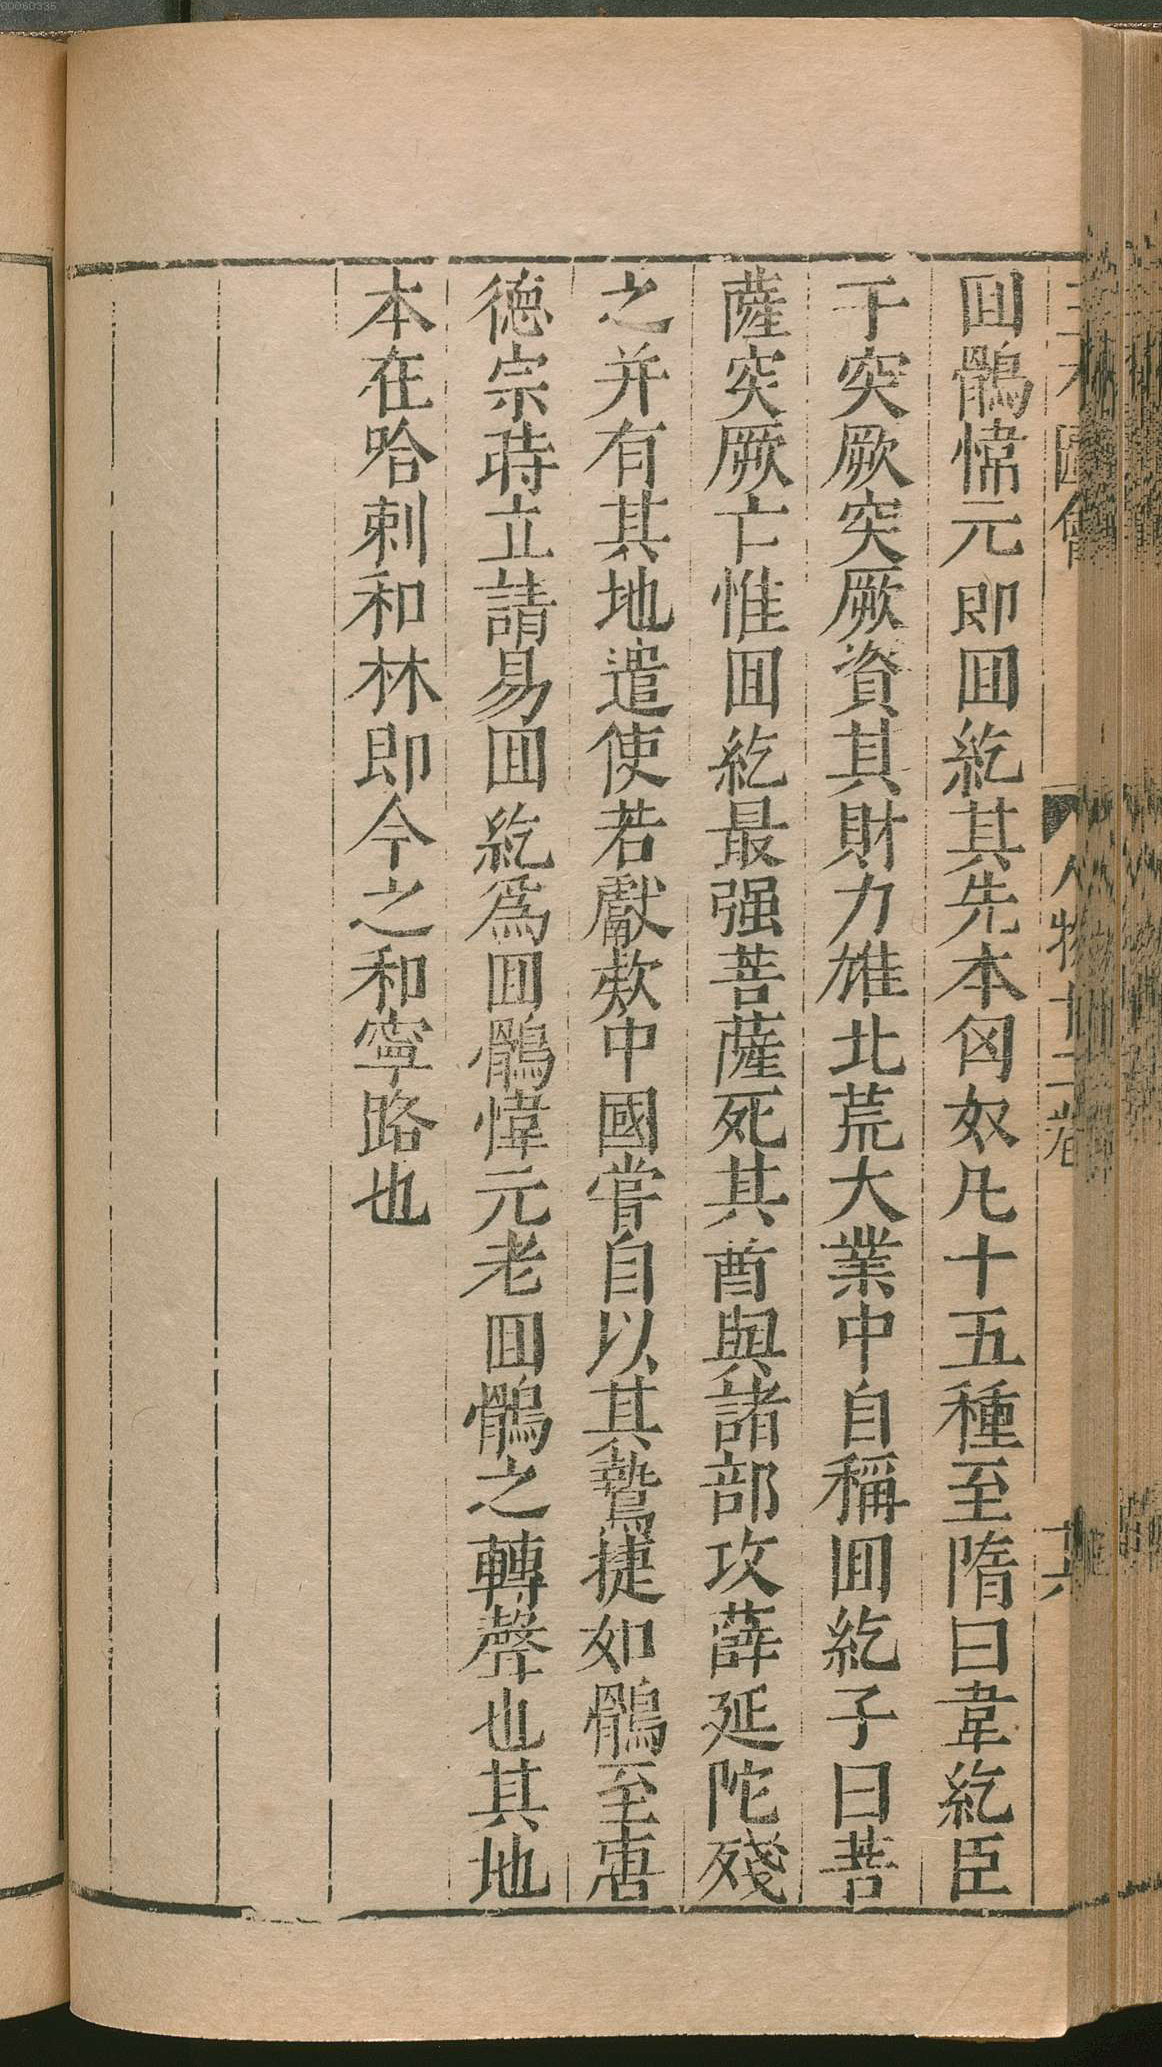 三才圖會 人物十二卷 十六
囬鶻愇元即囬紇其先本匈奴凡十五種至隋曰韋紇臣
于突厥突厥資其財力雄北荒大業中自稱囬紇子曰菩
薩突厥亡惟囬紇最强菩薩死其酋與諸部攻薛延陀殘
之并有其地遣使若獻欵中國嘗自以其鷙捷如鶻至唐
德宗時立請易囬紇爲囬鶻愇元老囬鶻之轉聲也其地
本在哈剌和林即今之和寧路也
00060335